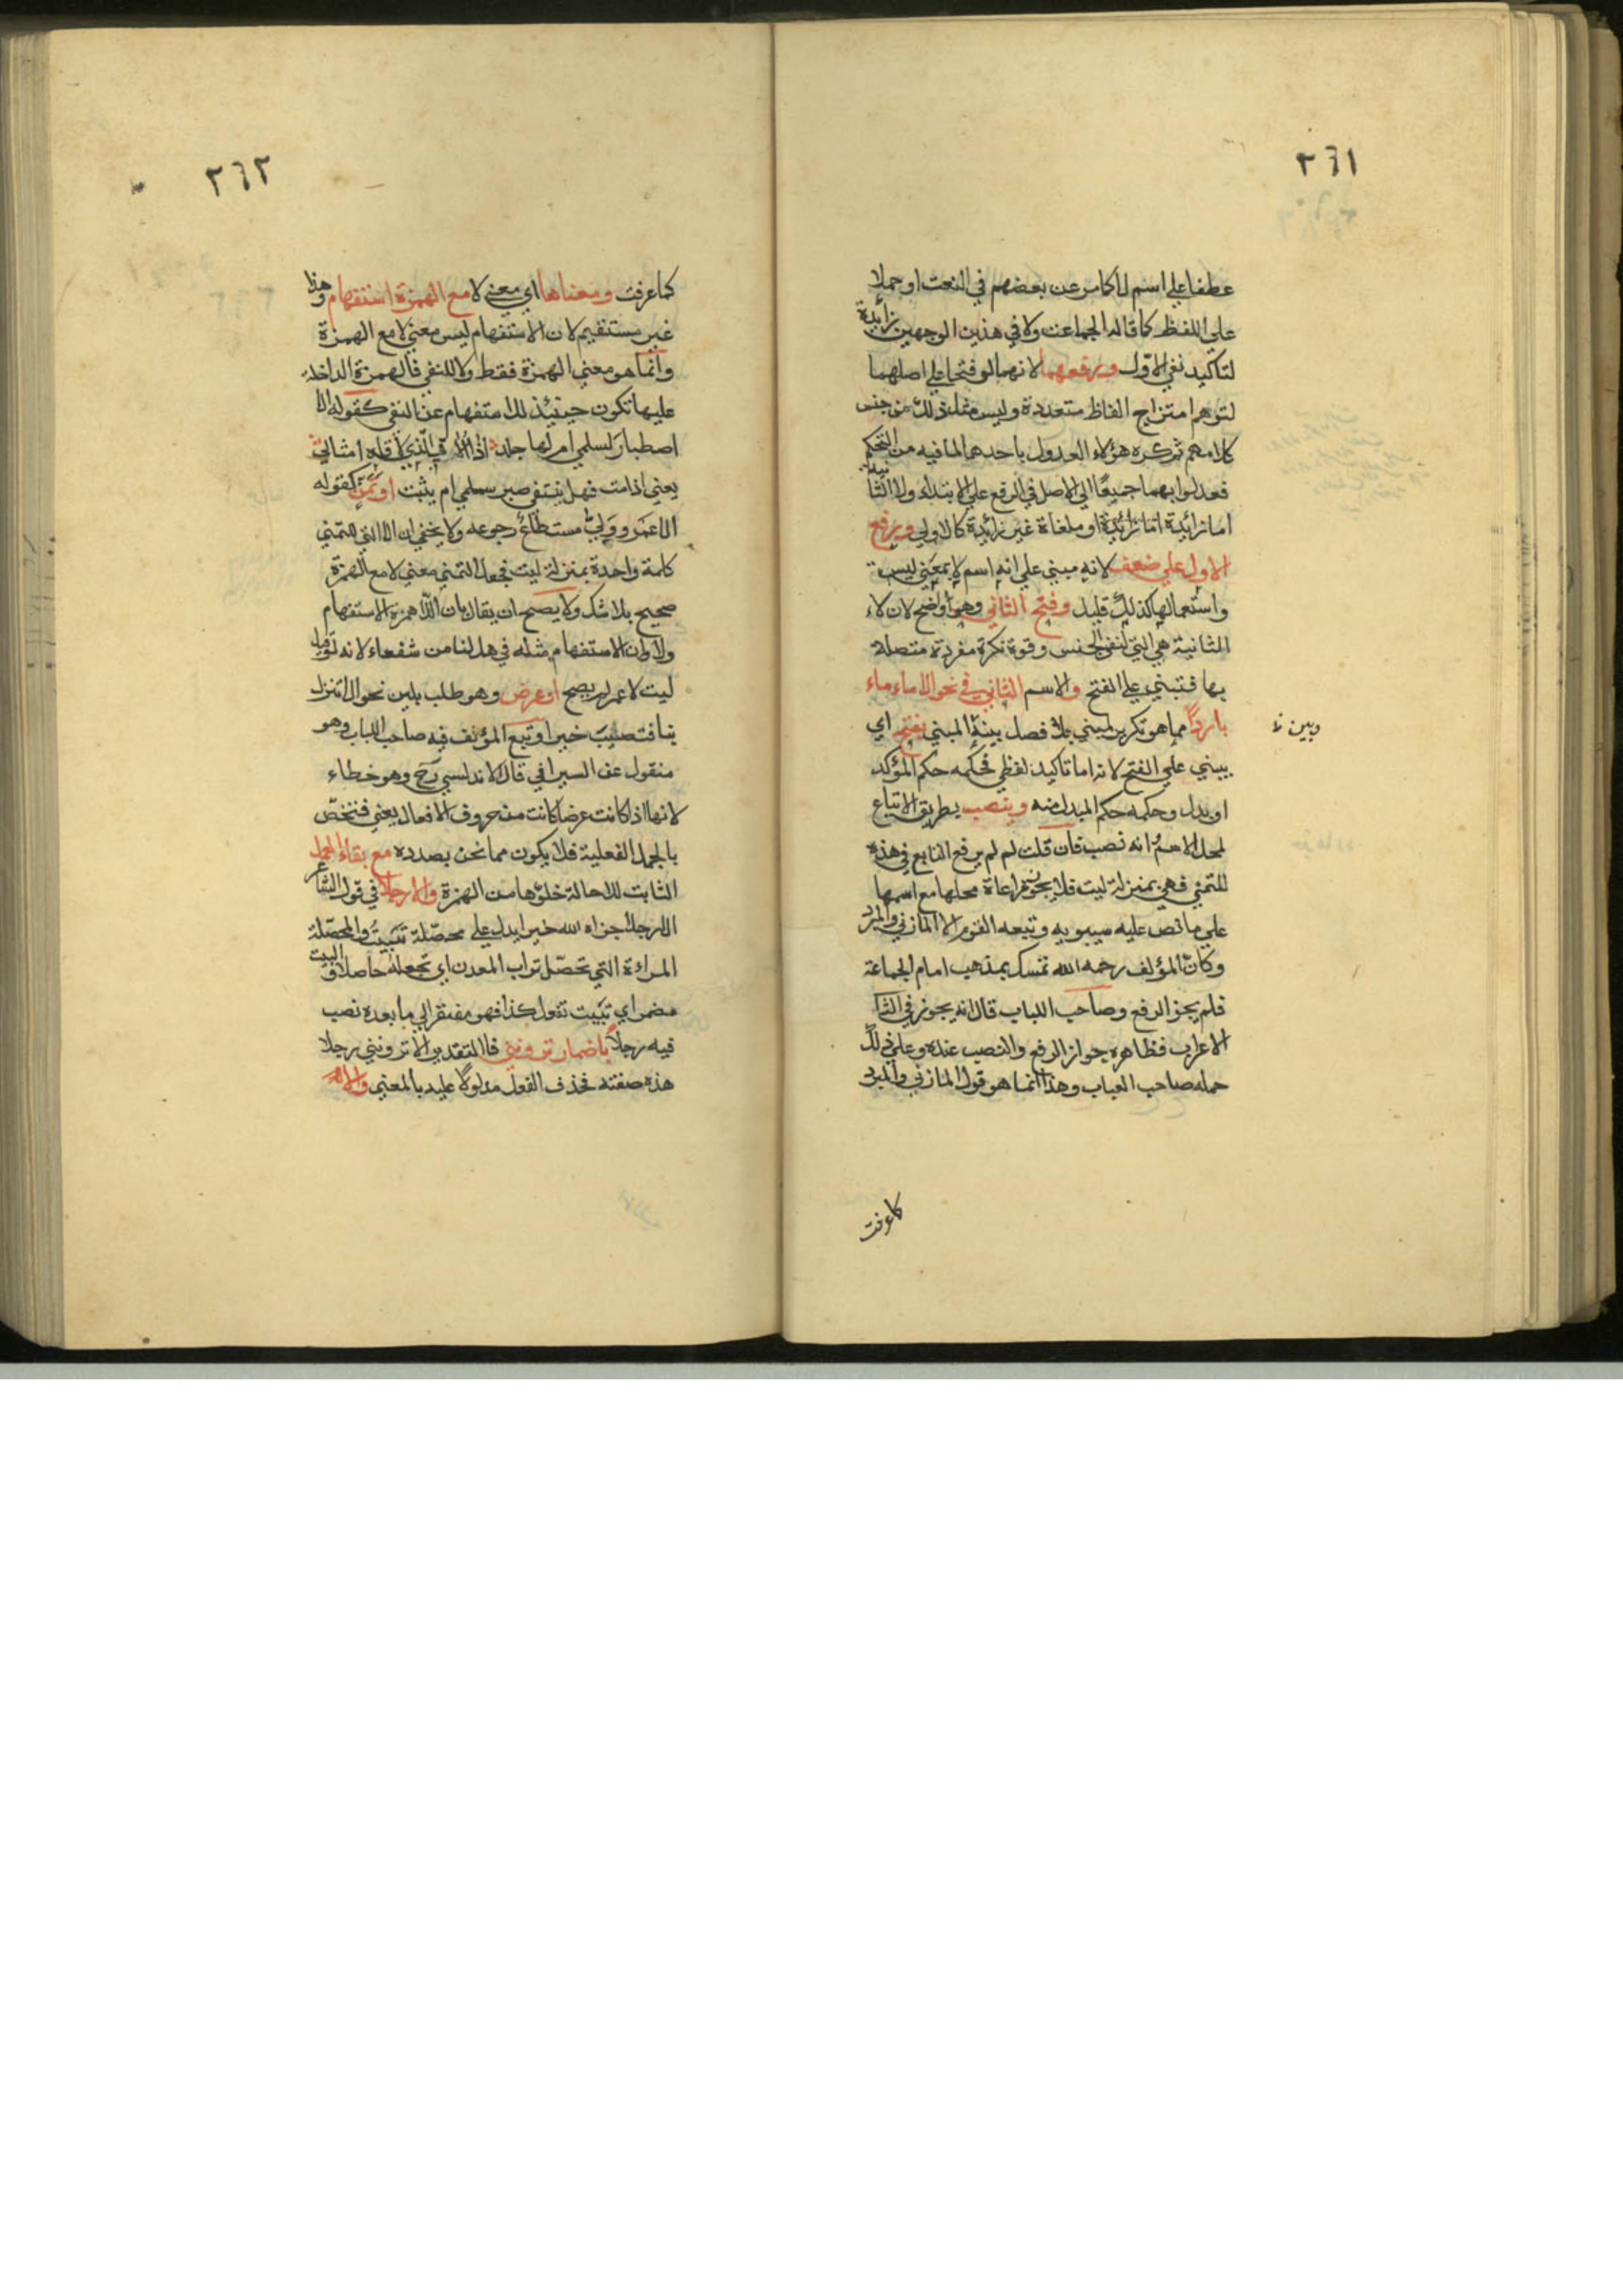 ٢٦١
عطفا على اسم لا كما مر عن بعضهم في النعت او حملا
على اللفظ كما قاله الجماعت ولا في هذين الوجهين زائدة
لتأكيد نفي الاول ويرفعهما لانهما لو فتحا على اصلهما
لتوهم امتزاج الفاظ متعددة وليس مثل ذلك من جنس
كلامهم ثم كره هؤلاء العدول باحدهما لما فيه من التحكم
فعدلوا بهما جميعًا الي الاصل في الرفع علي الابتداء ولا الثانية
اما زائدة او ملغاة غير زائدة كالاولي ويرفع
الاول علي ضعف لانه مبني علي انه اسم لا بمعني ليس
واستعمالها كذلك قليل وفتح الثاني وهو اوضح لان لاء
الثانية هي التي لنفي الجنس وقوة نكرة مفردة متصلة
بها فتبني علي الفتح والاسم الثاني في نحو الا ماء ماء
باردًا مما هو تكرير لمبني بلا فصل بينه المبني يفتح اي
وبين
يبني علي الفتح لانه اما تاكيد لفظي فحكمه حكم المؤكد
او بدل وحكمه حكم المبدل منه وينصب بطريق الاتباع
لمحل الاسم انه نصب فان قلت لم لم يرفع التابع في هذه
للتمني فهي بمنزلة ليت فلا يجوز مراعاة محلها مع اسمها
علي ما نص عليه سيبويه وتبعه القوم الا المازني والمبرد
وكان المؤلف رحمه الله تمسك بمذهب امام الجماعة
فلم يجوز الرفع وصاحب اللباب قال انه يجوز في الثا
الاعراب فظاهره جواز الرفع والنصب عنده وعلي ذلك
حمله صاحب العباب وهذا انما هو قول المازني والمبرد
كما عرفت
٢٦٢
كما عرفت ومعناها اي معني لا مع الهمزة استفهام وهذا
غير مستقيم لان الاستفهام ليس معني لا مع الهمزة
وانما هو معني الهمزة فقط ولا للنفي فالهمزة الداخلة
عليها تكون حينئذ للاستفهام عن النفي كقوله الا
اصطبار لسلمي ام لها جلد اذا الاقي الذي لاقاه امثالي
يعني اذا مت فهل ينتفي صبر سلمي ام يثبت او تمن كقوله
الا عمر وولي مستطاع رجوعه ولا يخفي ان الا التي للتمني
كلمة واحدة بمنزلة ليت فجعل التمني معني لا مع الهمزة
صحيح بلا شك ولا يصح ان يقال بان الا همزة الاستفهام
ولا وان الاستفهام مثله في هل لنا من شفعاء لانه لو قيل
ليت لا عمر لم يصح او عرض وهو طلب بلين نحو الا تنزل
بنا فتصيب خيرا وتبع المؤلف فيه صاحب اللباب وهو
منقول عن السيرافي قال الاندلسي رح وهو خطاء
لانها اذا كانت عرضا كانت من حروف الافعال يعني فتختص
بالجمل الفعلية فلا يكون مما نحن بصدده مع بقاء العمل
الثابت للا حالة خلوها من الهمزة والا رجلا في قول الشاعر
الا رجلا جزاه الله خيرا يدل علي محصلة تبيت والمحصلة
المراءة التي تحصل تراب المعدن اي تجعله حاصلا وفي البيت
مضمر اي تبيت تقول كذا فهو مفتقر الي ما بعده نصب
فيه رجلا باضمار ترونني فالتقدير الا ترونني رجلا
هذه صفته فحذف الفعل مدلولا عليه بالمعني والا لم